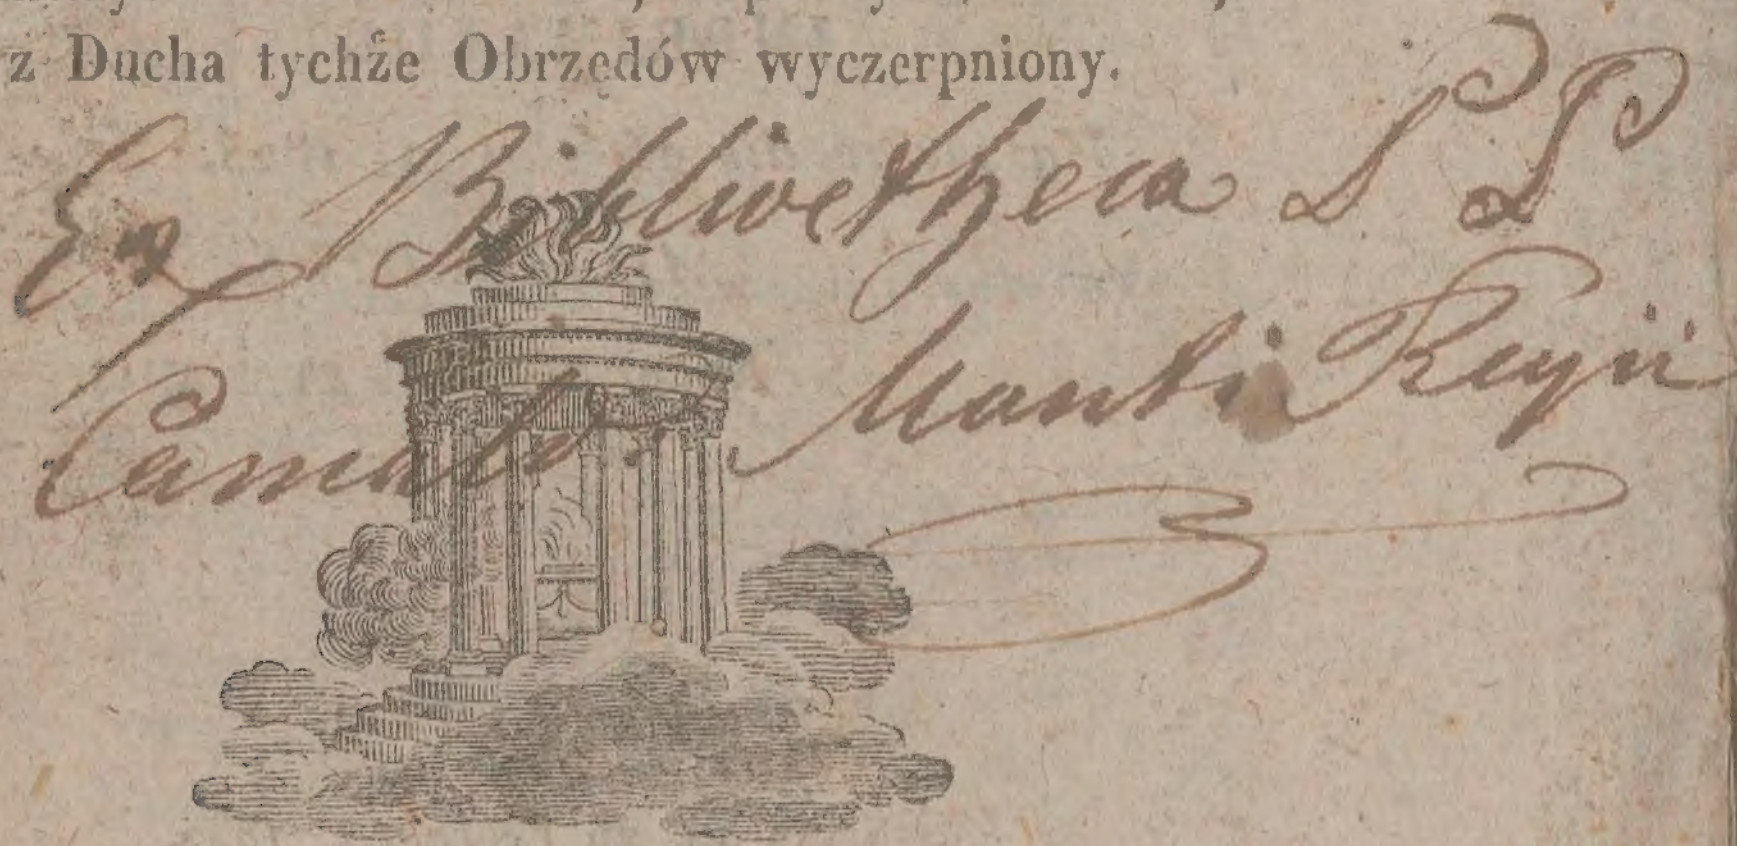 z Ducha tychże Obrzędów wyczerpniony.
Ex Bibliotheca P P
Camald. Monti Regii